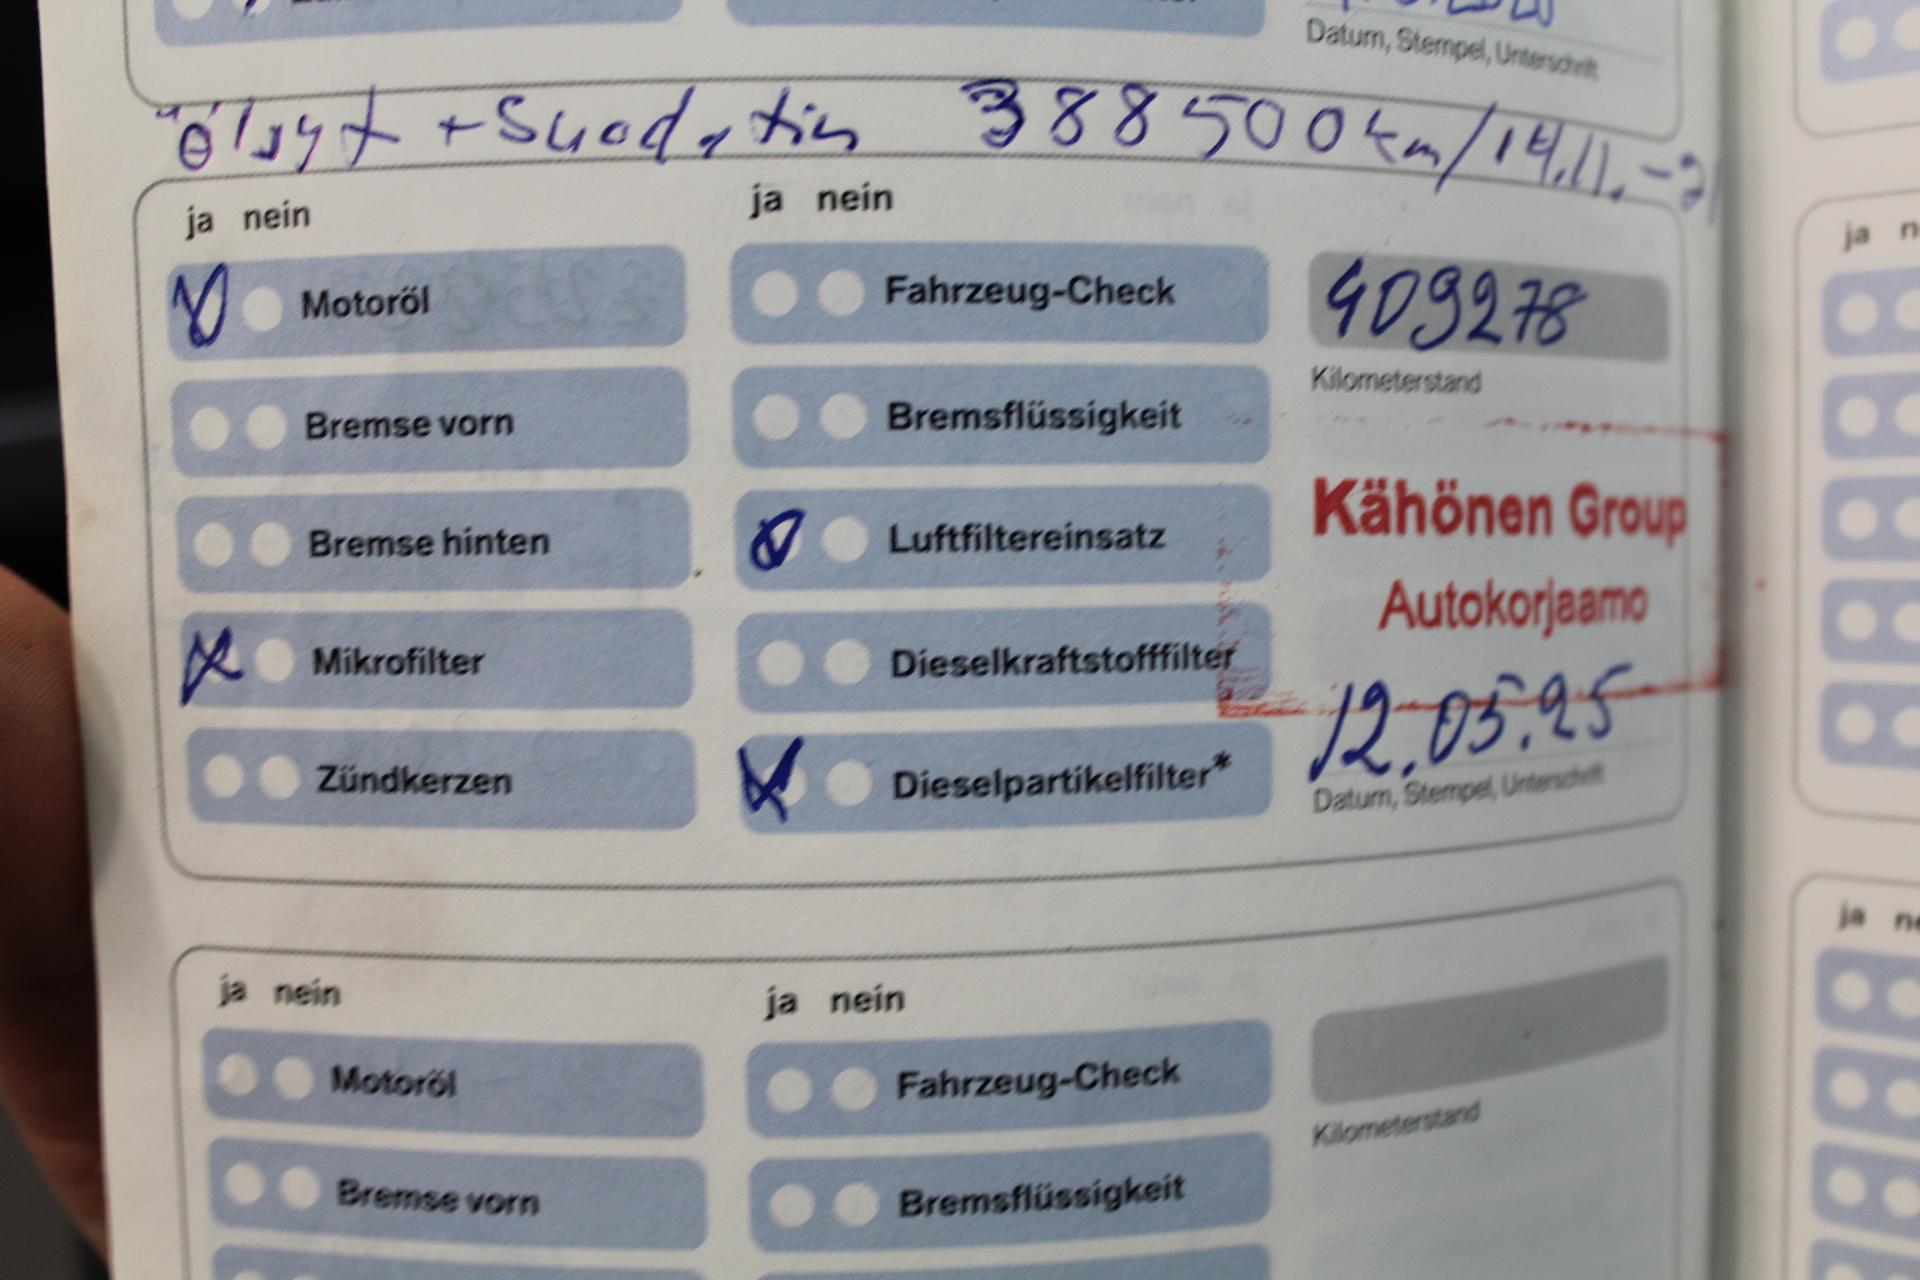 Datum, Stempel, Unterschrift
Öljyt + Suodatin 388500 km/14.11.-21
ja nein
Motoröl
Bremse vorn
Bremse hinten
Mikrofilter
Zündkerzen
ja nein
Fahrzeug-Check
Bremsflüssigkeit
Luftfiltereinsatz
Dieselkraftstofffilter
Dieselpartikelfilter*
409278
Kilometerstand
Kähönen Group
Autokorjaamo
12.05.25
Datum, Stempel, Unterschrift
ja nein
Motoröl
Bremse vorn
ja nein
Fahrzeug-Check
Bremsflüssigkeit
Kilometerstand
ja
ja